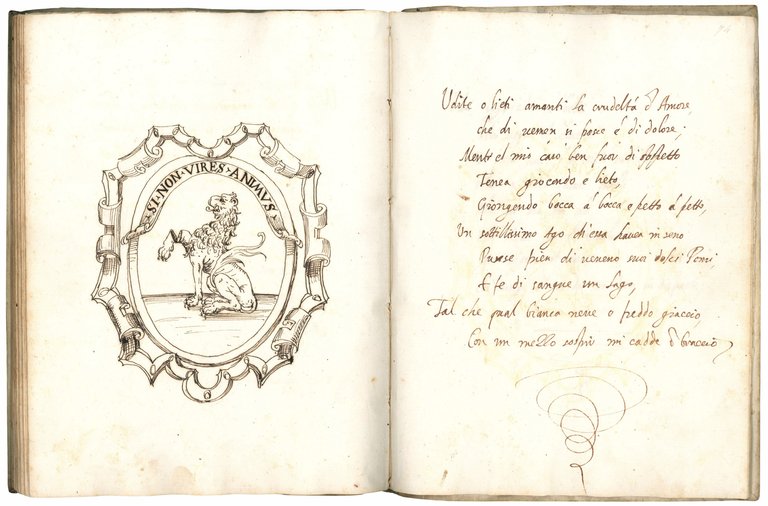 SI·NON·VIRES·ANIMVS
Udite o lieti amanti la crudeltà d'Amore
che di venen si pasce é di dolore;
Mentr'el mio caro ben fuor di sospetto
Tenea giocondo e lieto,
Giongendo bocca à bocca e petto à petto,
Un sottilissimo Ago ch'essa havea in seno
Punse pien di veneno suoi dolci Pomi,
E fe di sangue un Lago,
Tal che qual bianca neve o freddo giaccio
Con un mezzo sospir mi cadde in braccio